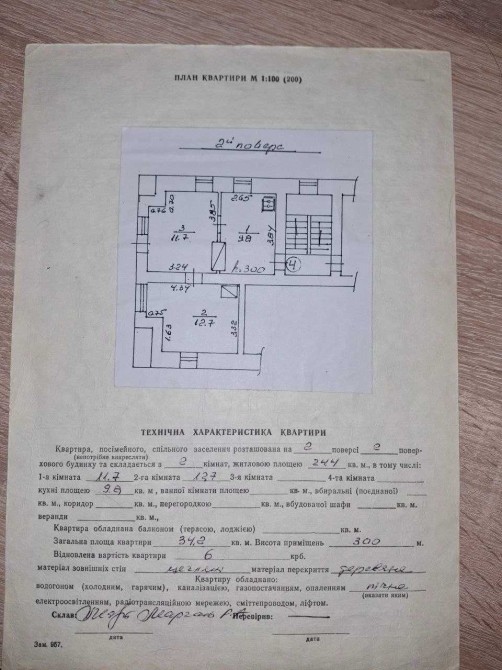 ПЛАН КВАРТИРИ М 1:100 (200)
2й поверх
0.76
0.70
3.85
2.65
3
11.7
1
9.8
3.84
3.24
h=3.00
4
4.34
0.75
1.63
2
12.7
3.32
ТЕХНІЧНА ХАРАКТЕРИСТИКА КВАРТИРИ
Квартира, посімейного, спільного заселення розташована на 2 поверсі 2 повер-
(непотрібне викреслити)
хового будинку та складається з 2 кімнат, житловою площею 24.4 кв. м., в тому числі:
1-а кімната 11.7 2-га кімната 12.7 3-я кімната 4-та кімната
кухні площею 9.8 кв. м, ванної кімнати площею кв. м, вбиральні (поєднаної)
кв. м, коридор кв. м., перегородкою кв. м., вбудованої шафи кв. м.
веранди кв. м.,
Квартира обладнана балконом (терасою, лоджією) кв. м.
Загальна площа квартири 34,2 кв. м. Висота приміщень 3.00 м.
Відновлена вартість квартири 6 крб.
матеріал зовнішніх стін цегляні матеріал перекриття деревяне
Квартиру обладнано:
водогоном (холодним, гарячим), каналізацією, газопостачанням, опаленням пічне
(вказати яким)
електроосвітленням, радіотрансляційною мережею, сміттєпроводом, ліфтом.
Склав: Перевірив:
дата дата
Зам. 957.